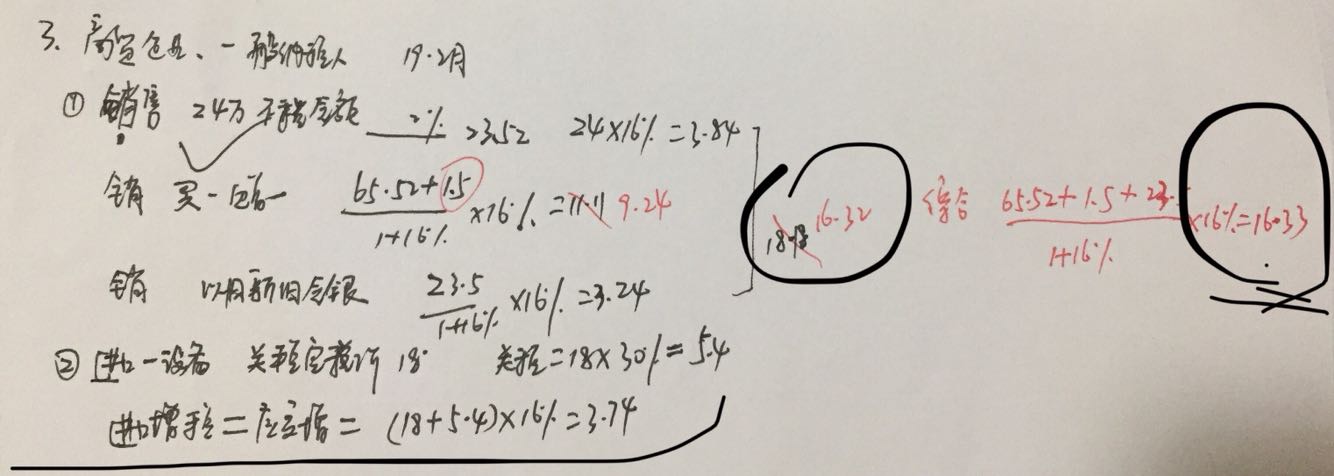 3. 商贸企业、一般纳税人 19.2月
① 销售 24万 不含税金额 2% 23.52 24×16%=3.84
销 买一 65.52+1.5/1+16% ×16%=11.11 9.24
18.18 16.32 综合 65.52+1.5+23./1+16% ×16%=16.33
销 以旧新旧金银 23.5/1+16% ×16%=3.24
② 进口一设备 关税完税价 18 关税=18×30%=5.4
进口增税= = (18+5.4)×16%=3.74